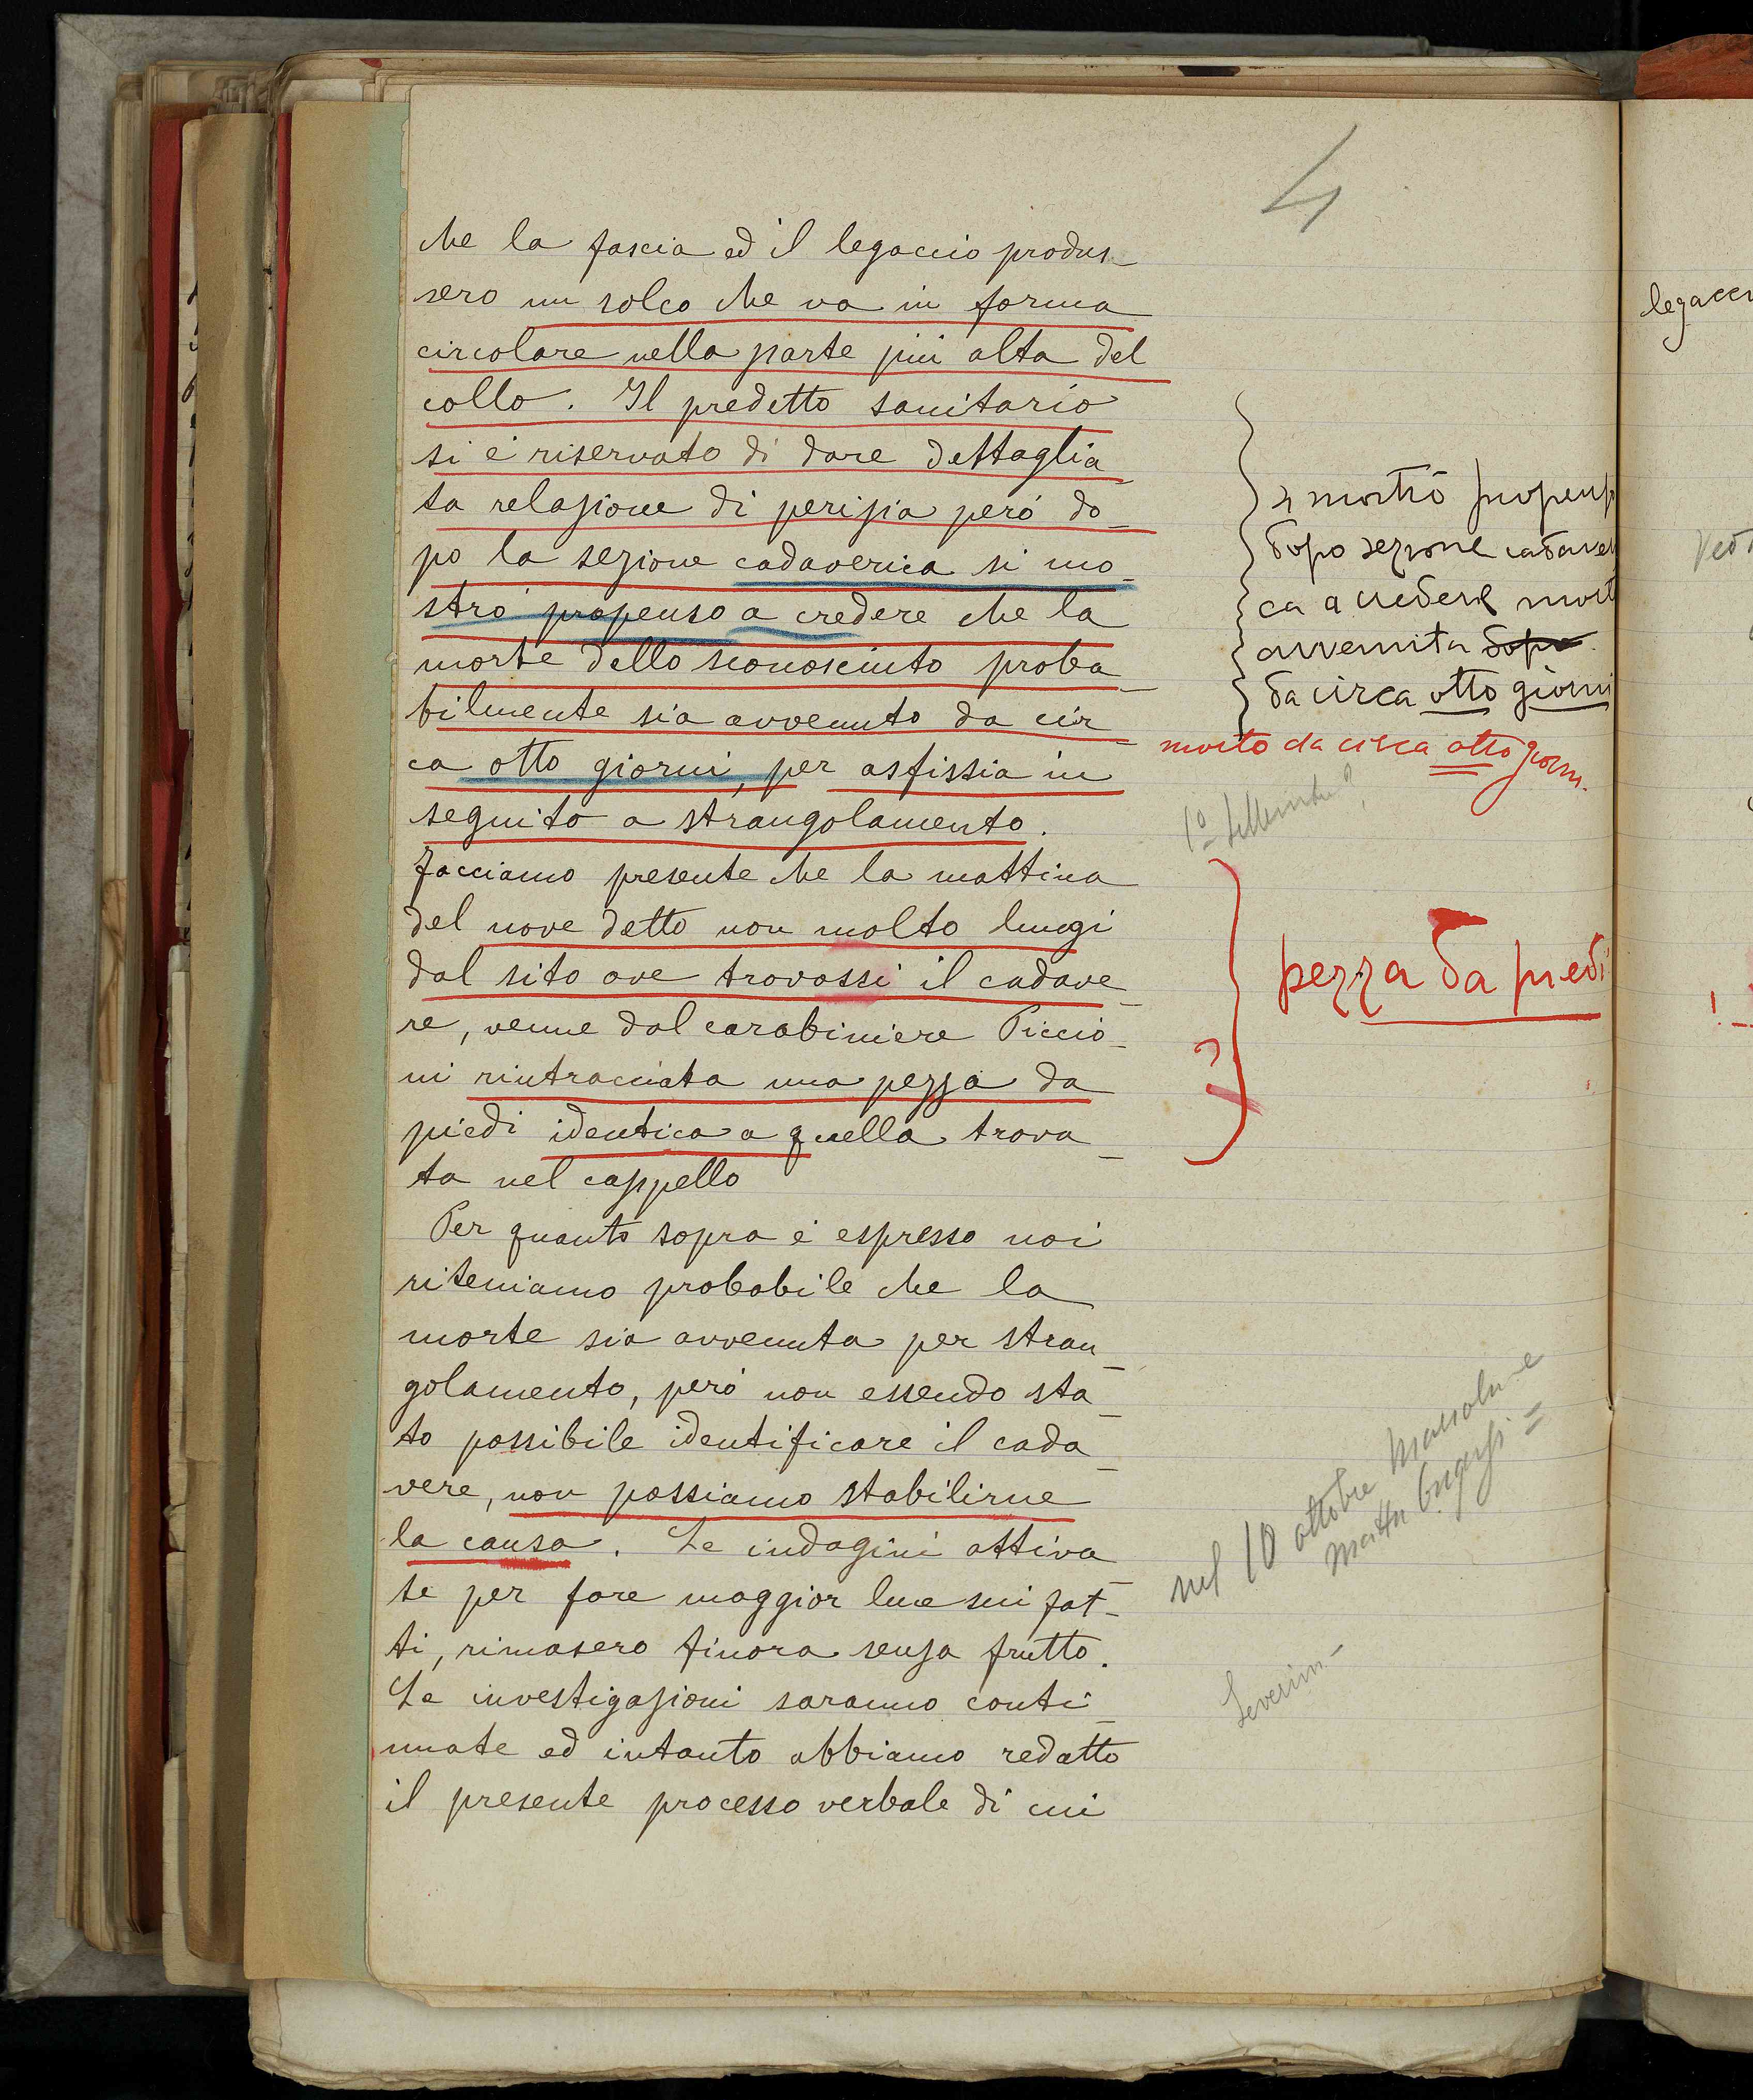 4
che la fascia ed il legaccio produs-
sero un solco che va in forma
circolare nella parte più alta del
collo. Il predetto sanitario
si è riservato di dare dettaglia-
ta relazione di perizia però do-
po la sezione cadaverica si mo-
strò propenso a credere che la
morte dello sconosciuto proba-
bilmente sia avvenuto da cir-
ca otto giorni, per asfissia in
seguito a strangolamento.
Facciamo presente che la mattina
del nove detto non molto lungi
dal sito ove trovossi il cadave-
re, venne dal carabiniere Piccio-
ni rintracciata una pezza da
piedi identica a quella trova-
ta nel cappello
Per quanto sopra è espresso noi
riteniamo probabile che la
morte sia avvenuta per stran-
golamento, però non essendo sta-
to possibile identificare il cada-
vere, non possiamo stabilirne
la causa. Le indagini attiva-
te per fare maggior luce sui fat-
ti, rimasero finora senza frutto.
Le investigazioni saranno conti-
nuate ed intanto abbiamo redatto
il presente processo verbale di cui
si mostrò propens
dopo sezione cadave
ca a credere mort
avvenuta dopo
da circa otto giorni
morto da circa otto giorni.
1º Settembre?
?
pezza da piedi
nel 10 ottobre
matta
Severin-
legacci
Ved
!